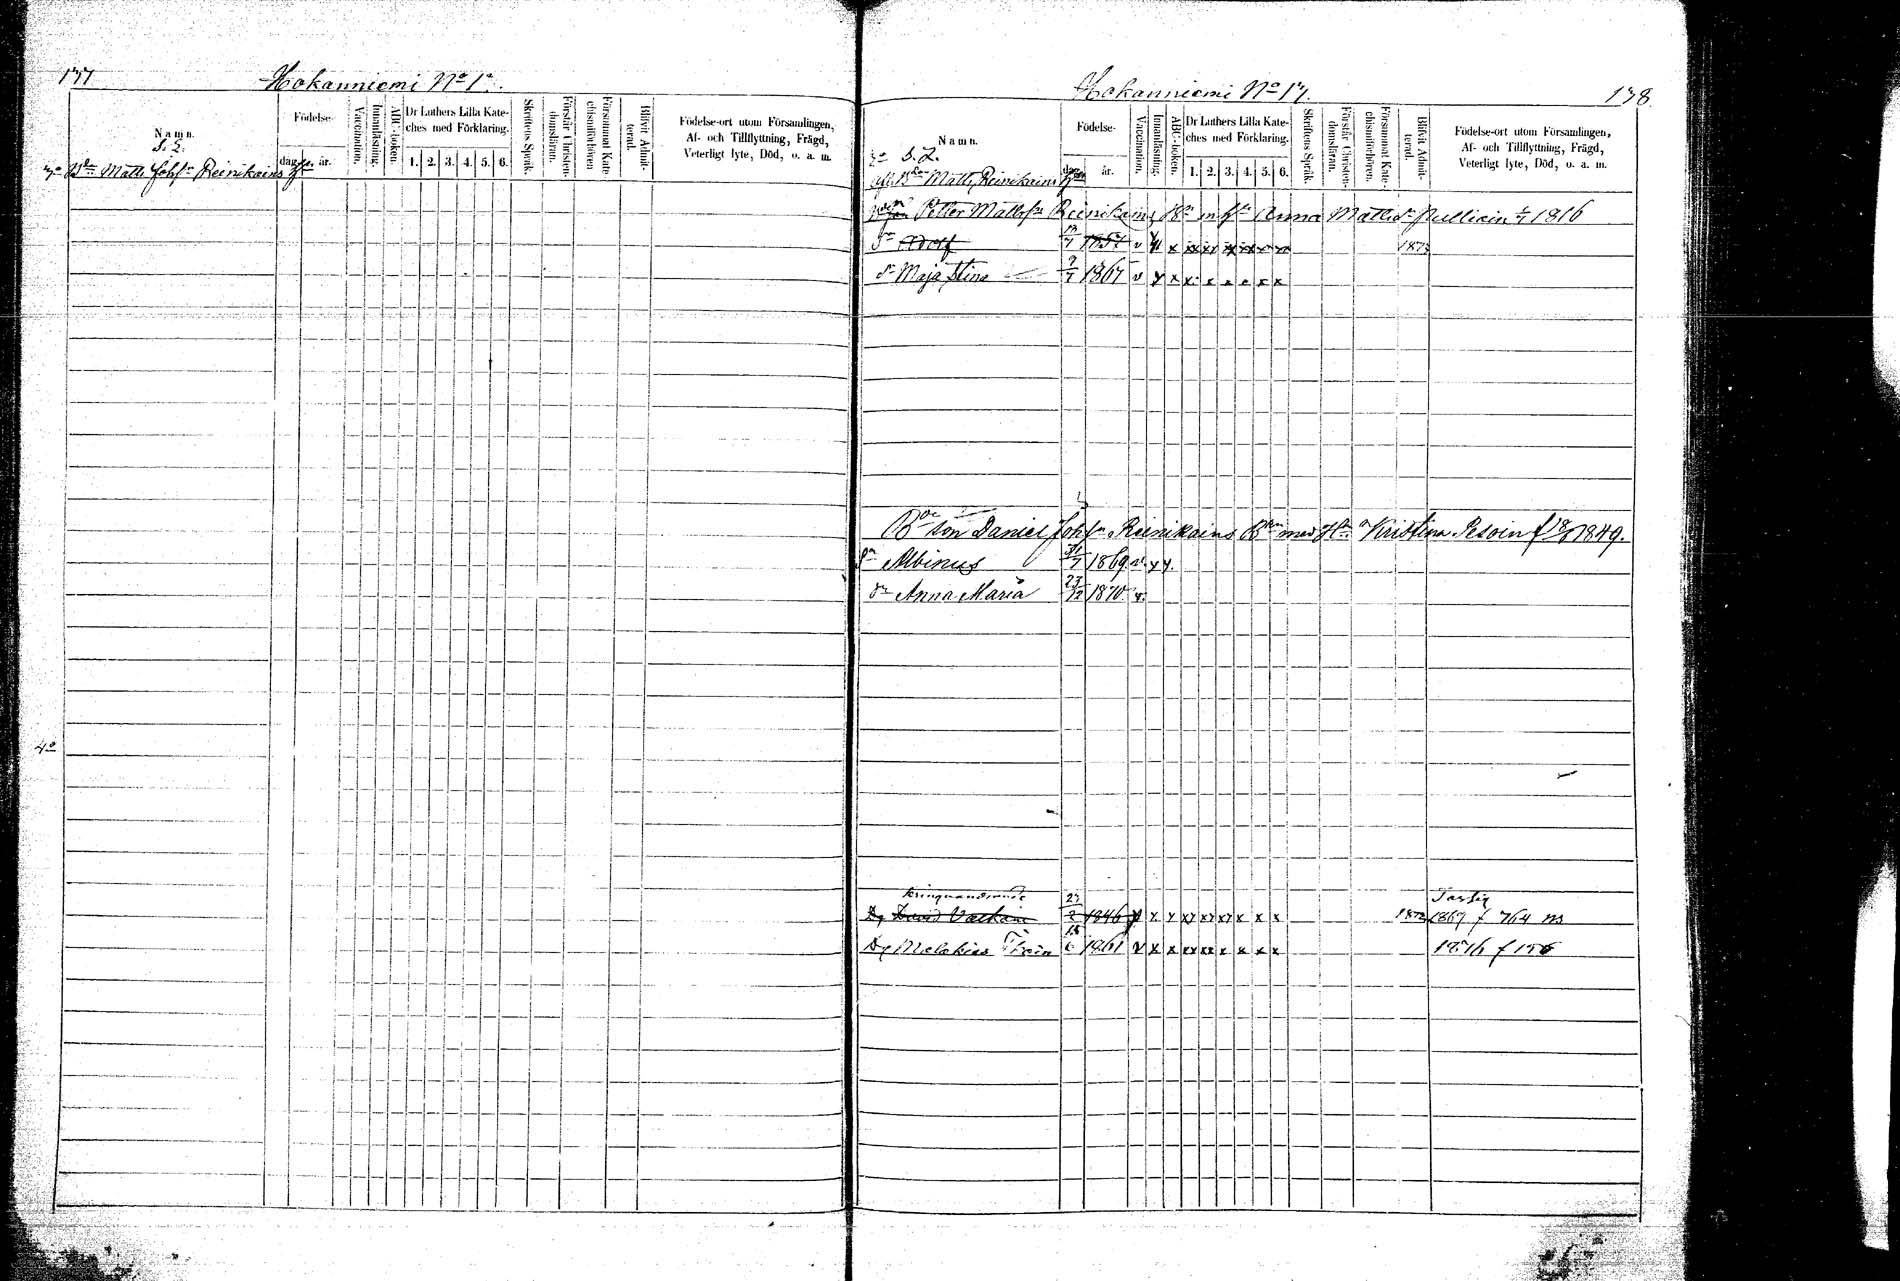 177
Hokanniemi No 1
Namn.
Födelse-
dag. år.
Vaccination.
Innanläsning.
ABC-boken.
Dr Luthers Lilla Kate-
ches med Förklaring.
1. 2. 3. 4. 5. 6.
Skriftens Språk.
Förstår Christen-
domsläran.
Försummat Kate-
chismiförhören
Blifvit Admit-
terad.
Födelse-ort utom Församlingen,
Af- och Tillflyttning, Frägd,
Veterligt lyte, Död, o. a. m.
Matts Johsn Reinikains
4o
Hokanniemi No 17.
178
Namn.
Födelse-
dag. år.
Vaccination.
Innanläsning.
ABC-boken.
Dr Luthers Lilla Kate-
ches med Förklaring.
1. 2. 3. 4. 5. 6.
Skriftens Språk.
Förstår Christen-
domsläran.
Försummat Kate-
chismiförhören.
Blifvit Admit-
terad.
Födelse-ort utom Församlingen,
Af- och Tillflyttning, Frägd,
Veterligt lyte, Död, o. a. m.
Matts Reinikains
Petter Mattsn Reinikains Anna Matts dr 1816
Sn Adolf 1857 v x 1873
dr Maja Stina 7/7 1867 v y x x x x x x x
son Daniel Johsn Reinikains med Kristina Pesoin f 1849.
Sn Albinus 31/7 1869 v. y y.
dr Anna Maria 23/12 1870 v.
kringvandrande
27/2 1846 x y x x x 1867 f 764
Dg Melakias 15/6 1861 v x x xx xx x x x x 1876 f